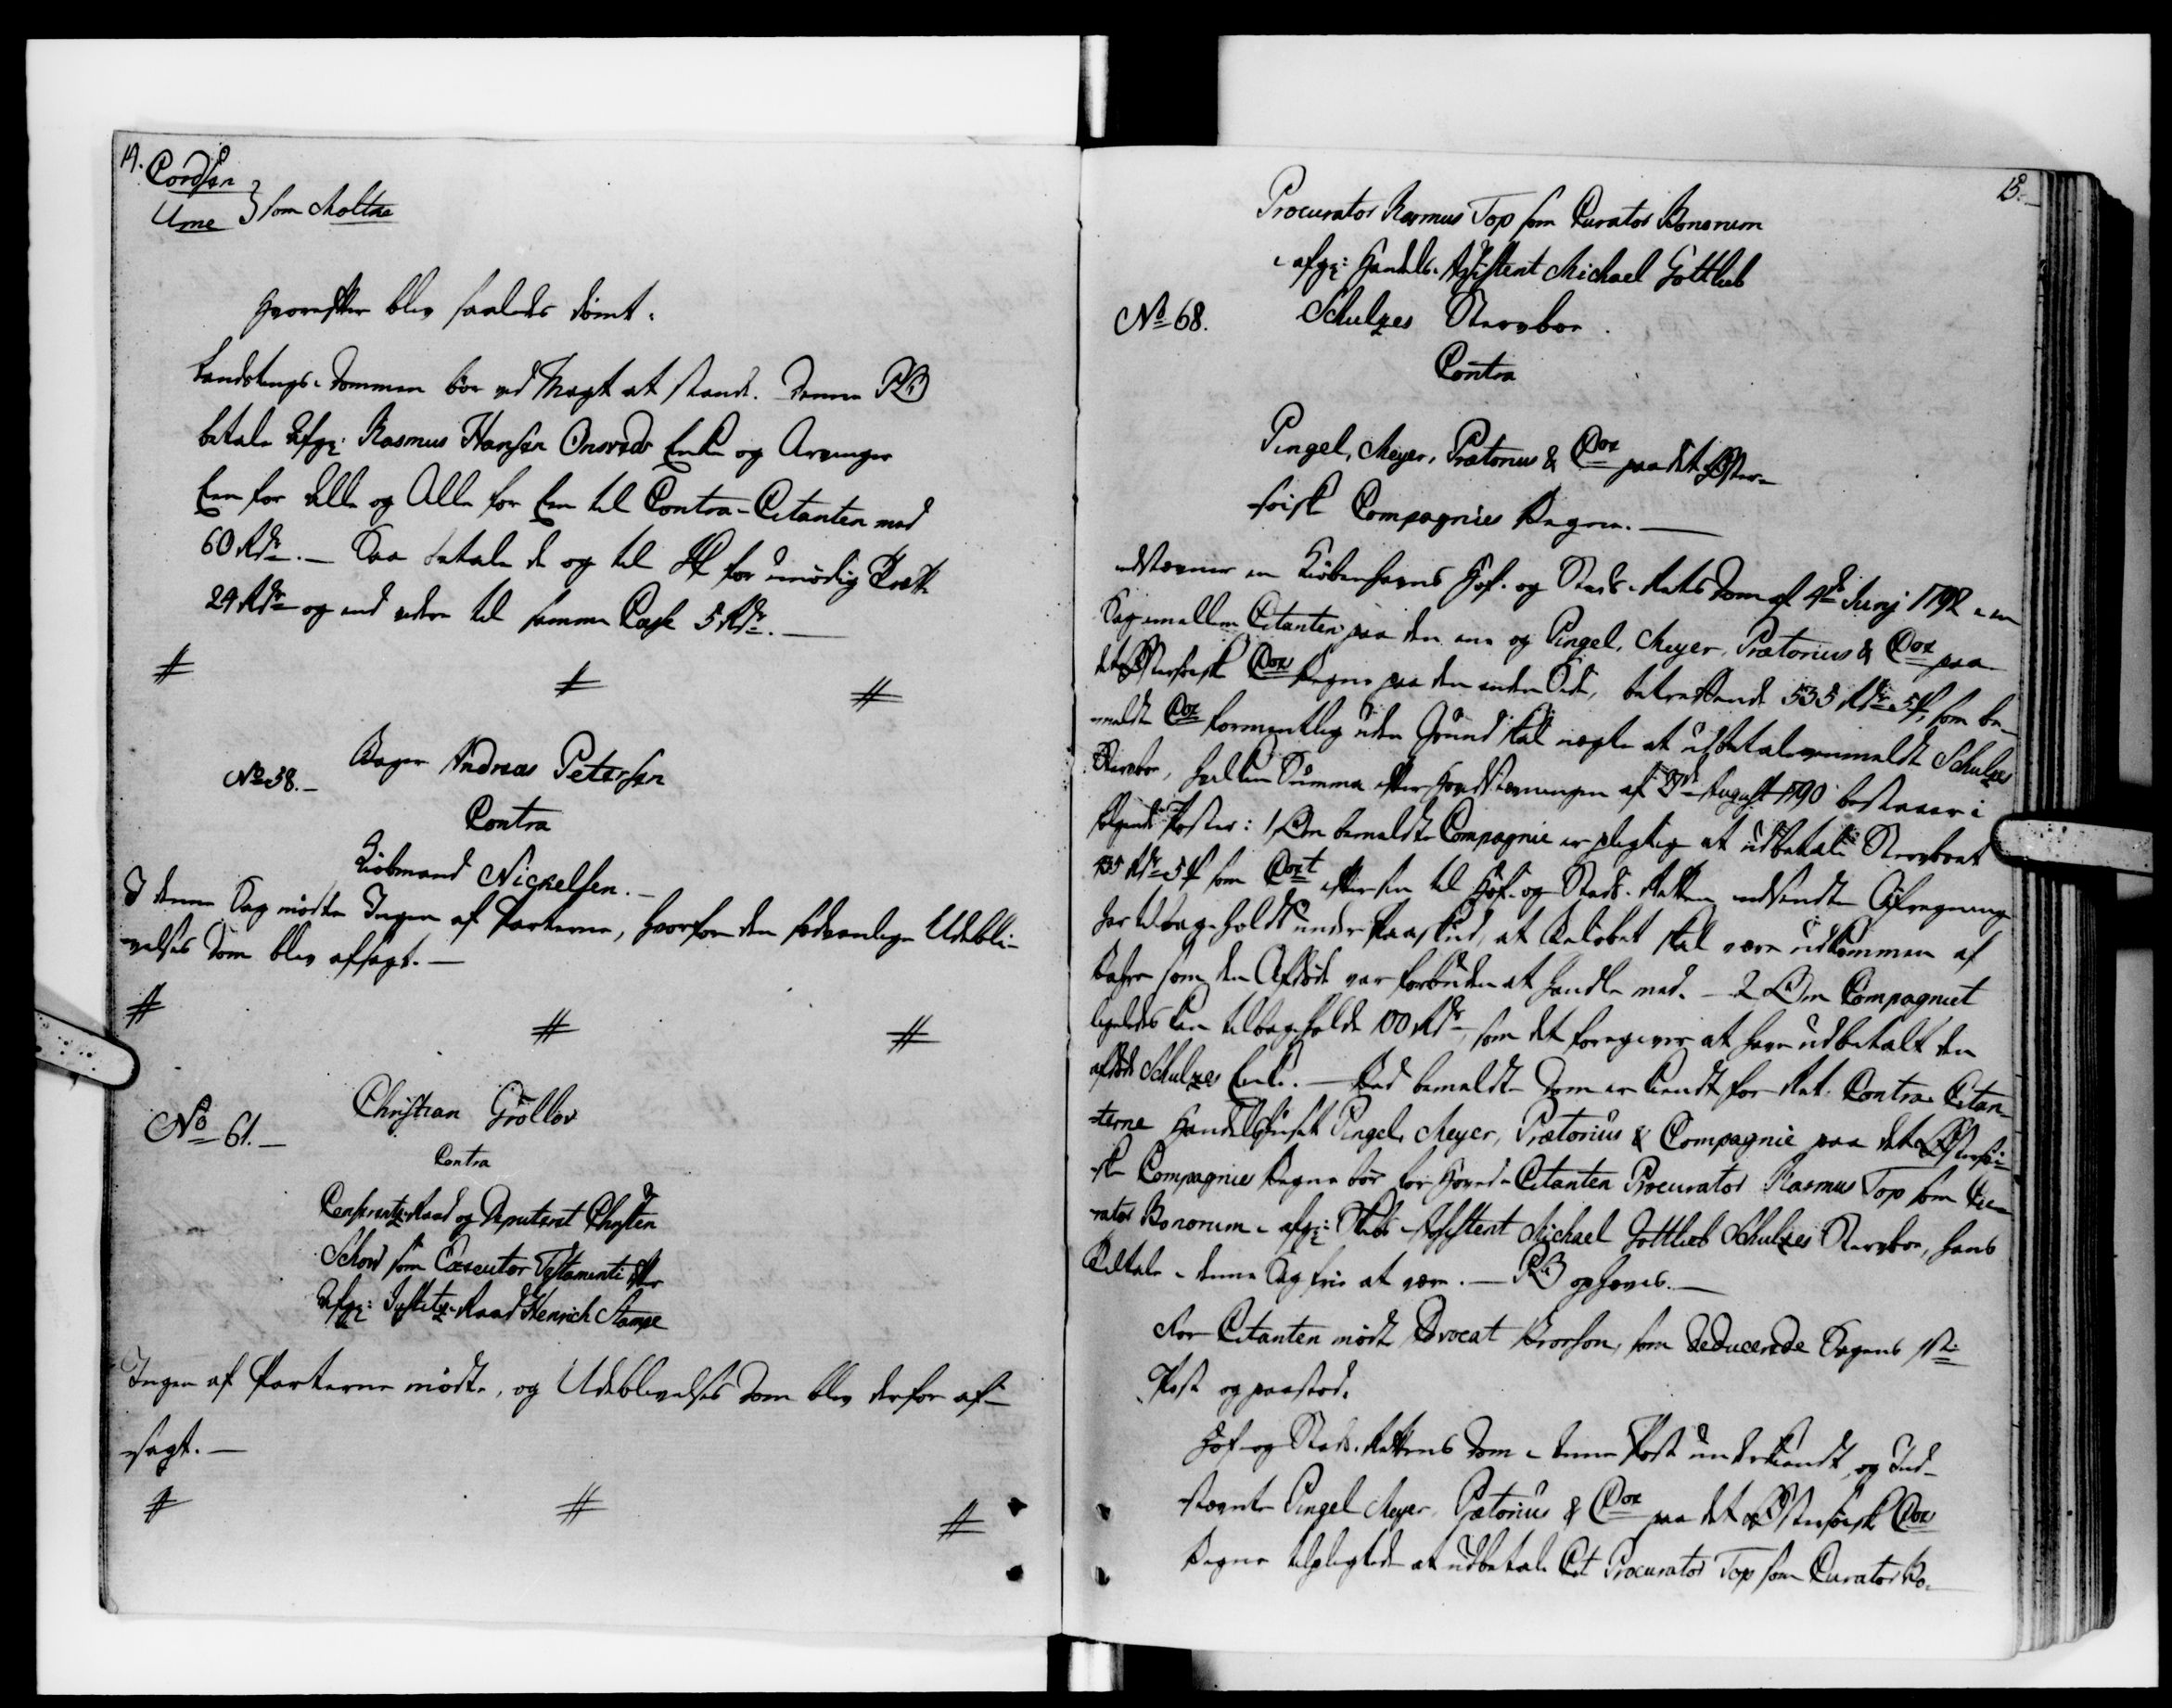 14.
Cordsen
Urne } som Moltke
Hvorefter blev saaledes dömt:
Landstings-Dommen bör ved Magt at stande. Denne
betale Afg: Rasmus Hansen Onsveds Enke og Arvinger
Een for Alle og Alle for Een til Contra-Citanten med
60 Rdr. – Saa betale de og til for unödig Trætte
24 Rdr og end videre til samme Casse 5 Rdr. –
# # #
No 58. –
Bager Andreas Petersen
Contra
Kiöbmand Nickelsen. –
I denne Sag mödte Ingen af Parterne, hvorfor den sædvanlige Udebli-
velses Dom blev afsagt. –
# # #
No 61. –
Christian Gröllov
Contra
Conferentz-Raad og Deputeret Christen
Schow som Executor Testamenti efter
Afg: Justitz-Raad Henrich Stampe
Ingen af Parterne mödte, og Udeblivelses Dom blev derfor af-
sagt. –
# # #
15.
Procurator Rasmus Top som Curator Bonorum
i afg: Handels-Assistent Michael Gottlieb
No 68.
Schulzes Stervboe.
Contra
Pingel, Meyer, Prætorius & Coe paa det Öster-
söisk Compagnies Vegne. –
indstævner en Kiöbenhavns Hof- og Stads-Rets Dom af 4de Junj 1792 i en
Sag imellem Citanten paa den ene og Pingel, Meyer, Prætorius & Coe paa
det Östersöisk Coes Vegne paa den anden Side, betreffende 535 Rdr 5 ß, som be-
meldte Coe formentlig uden Grund skal nægte at udbetale ommeldte Schulzes
Stervboe, hvilken Summa efter Hovedstævningen af August 1790 bestaaer i
fölgende Poster: 1) Om bemeldte Compagnie er pligtig at udbetale Stervboet
435 Rdr 5 ß som efter sin til Hof- og Stads-Retten indsendte Afregning
har tilbageholdt under Paaskud, at Belöbet skal være udkommen af
Vahre som den Afdöde var forbuden at handle med. – 2) Om Compagniet
ligeledes kan tilbageholde 100 Rdr, som det foregiver at have udbetalt den
afdöde Schulzes Enke. – Ved bemeldte Dom er kiendt for Ret: Contra-Citan-
terne Handelshuset Pingel, Meyer, Prætorius & Compagnie paa det Östersöi-
ske Compagnies Vegne bör for Hoved-Citanten Procurator Rasmus Top som Cu-
rator Bonorum i afg: Assistent Michael Gottlieb Schulzes Stervboe, hans
Tiltale i denne Sag frie at være. – ophæves. –
For Citanten mödte Advocat Brorson, som deducerede Sagens 1ste
Post og paastod,
Hof- og Stads-Rettens Dom i denne Post underkiendt, og Ind-
stævnte Pingel Meyer, Prætorius & Coe paa det Östersöisk Coes
Vegne tilpligtede at udbetale Cit Procurator Top som Curator Bo-